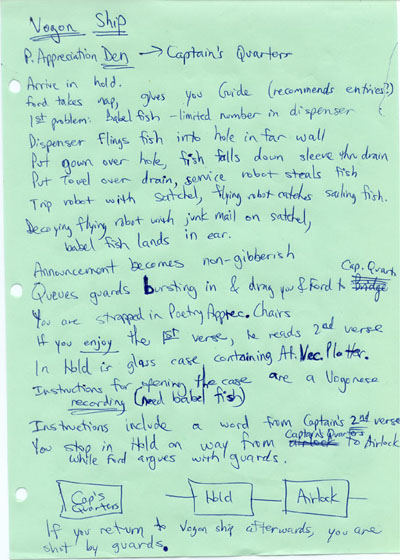 Vogon Ship
P. Appreciation Den → Captain's Quarters
Arrive in hold.
Ford takes nap, gives you Guide (recommends entries?)
1st problem: babel fish - limited number in dispenser
Dispenser flings fish into hole in far wall
Put gown over hole, fish falls down sleeve thru drain
Put towel over drain, service robot steals fish
Trip robot with satchel, flying robot catches sailing fish.
Decoying flying robot with junk mail on satchel,
babel fish lands in ear.
Announcement becomes non-gibberish
Cap. Quarts
Queues guards bursting in & drag you & Ford to Bridge
You are strapped in Poetry Apprec. Chairs
If you enjoy the 1st verse, he reads 2nd verse
In Hold is glass case containing At. Vec. Plotter.
Instructions for opening the case are a Vogonese
recording (need babel fish)
Instructions include a word from Captain's 2nd verse
Captain's Quarters
You stop in Hold on way from airlock to Airlock
while Ford argues with guards.
Cap's Quarters Hold Airlock
If you return to Vogon ship afterwards, you are
shot by guards.